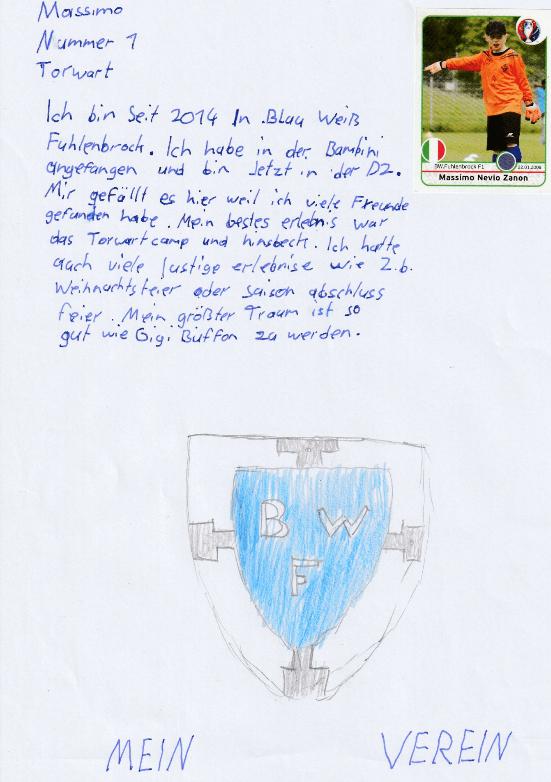 Massimo
Nummer 1
Torwart
Ich bin seit 2014 In Blau Weiß
Fuhlenbrock. Ich habe in der Bambini
angefangen und bin Jetzt in der D2.
Mir gefällt es hier weil ich viele Freunde
gefunden habe. Mein bestes erlebnis war
das Torwartcamp und hinsbeck. Ich hatte
auch viele lustige erlebnise wie Z.b.
Weihnachtsfeier oder saison abschluss
feier. Mein größter Traum ist so
gut wie Gigi Buffon zu werden.
BW.Fuhlenbrock F1
Massimo Nevio Zanon
B W
F
MEIN VEREIN